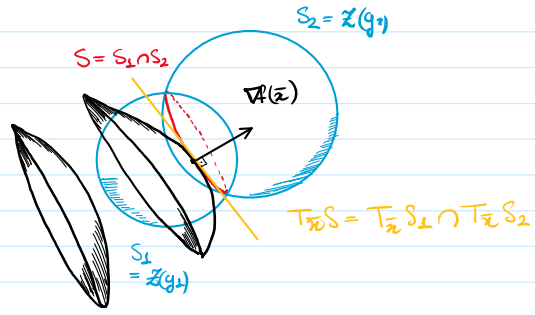 S₂ = Z(g₂)
S = S₁ ∩ S₂
∇f(x̄)
T_x̄ S = T_x̄ S₁ ∩ T_x̄ S₂
S₁
= Z(g₁)